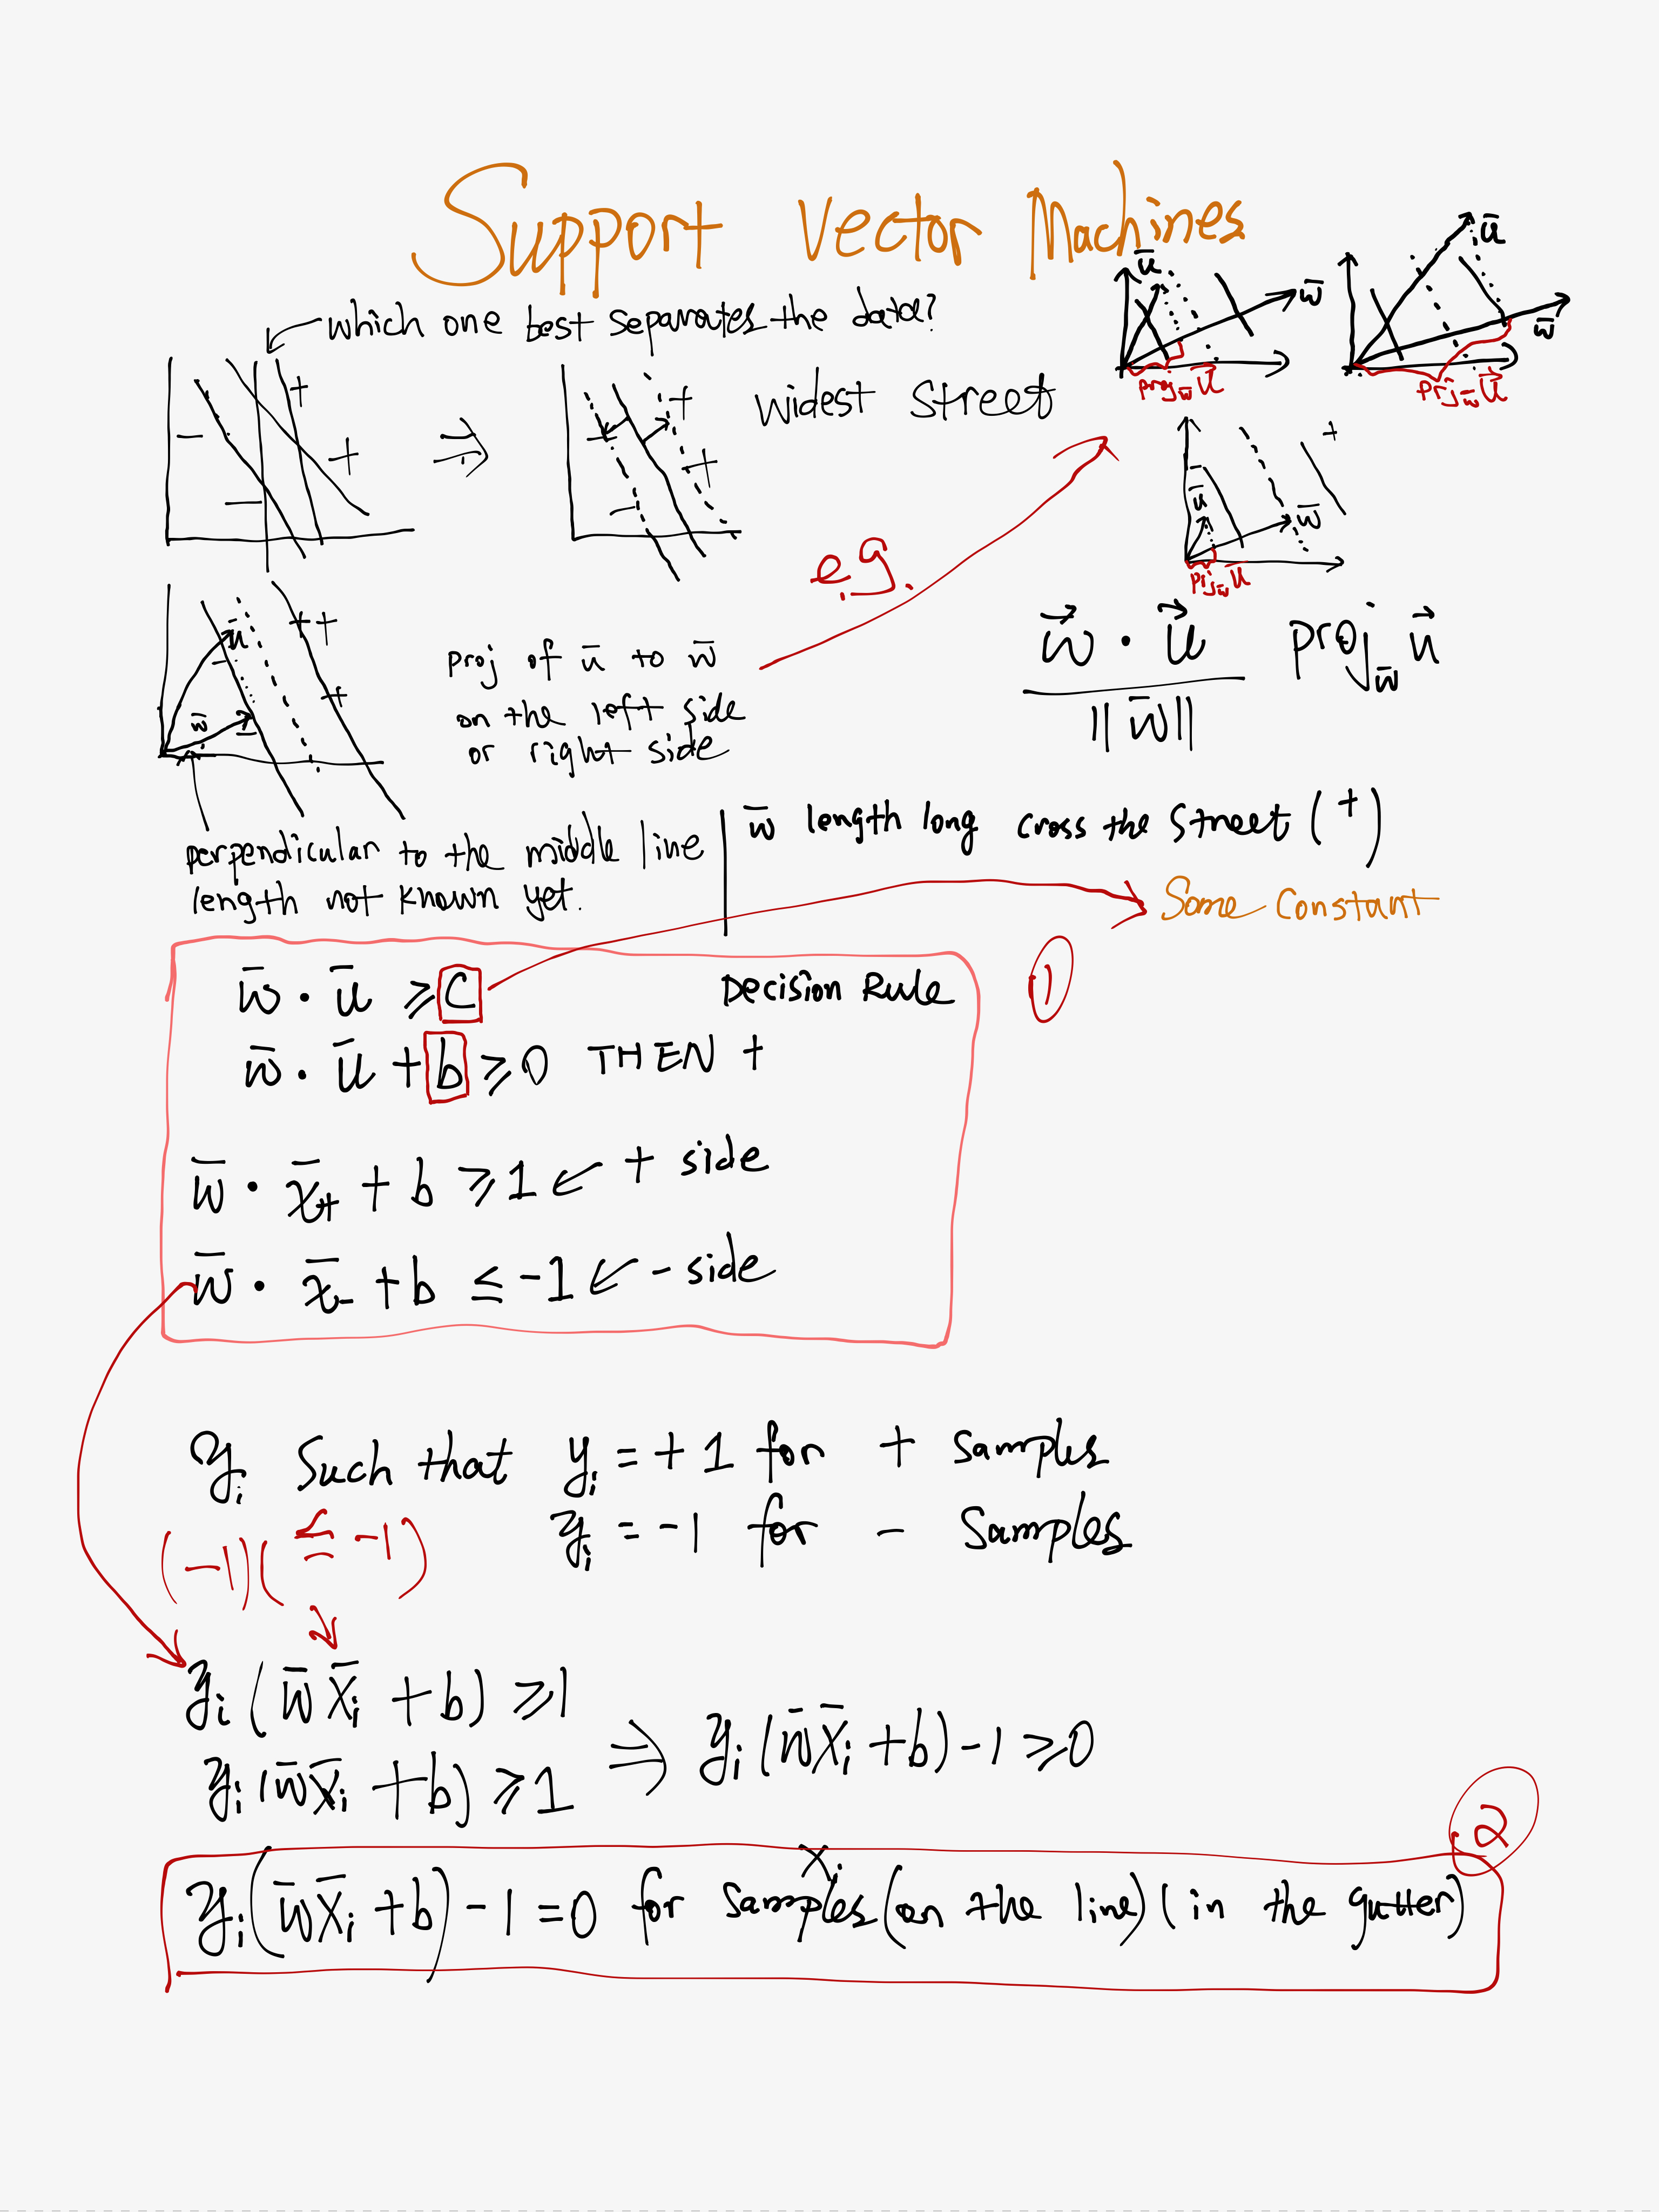 Support Vector Machines
which one best separates the data?
widest street
ū
w̄
proj_w̄ ū
ū
w̄
prj_w̄ ū
ū
w̄
prj_w̄ ū
e.g.
ū
w̄
proj of ū to w̄
on the left side
or right side
w⃗ · u⃗ / ||w̄|| proj_w̄ u⃗
perpendicular to the middle line
length not known yet.
w̄ length long cross the street (+)
Some Constant
w̄ · ū ≥ C Decision Rule ①
w̄ · ū + b ≥ 0 THEN +
w̄ · x̄₊ + b ≥ 1 ← + side
w̄ · x̄₋ + b ≤ -1 ← - side
yᵢ Such that yᵢ = +1 for + samples
yᵢ = -1 for - samples
(-1)( ≤ -1)
yᵢ(w̄ x̄ᵢ + b) ≥ 1
yᵢ(w̄ x̄ᵢ + b) ≥ 1 ⇒ yᵢ(w̄ x̄ᵢ + b) - 1 ≥ 0
②
yᵢ(w̄ x̄ᵢ + b) - 1 = 0 for xᵢ samples (on the line) (in the gutter)